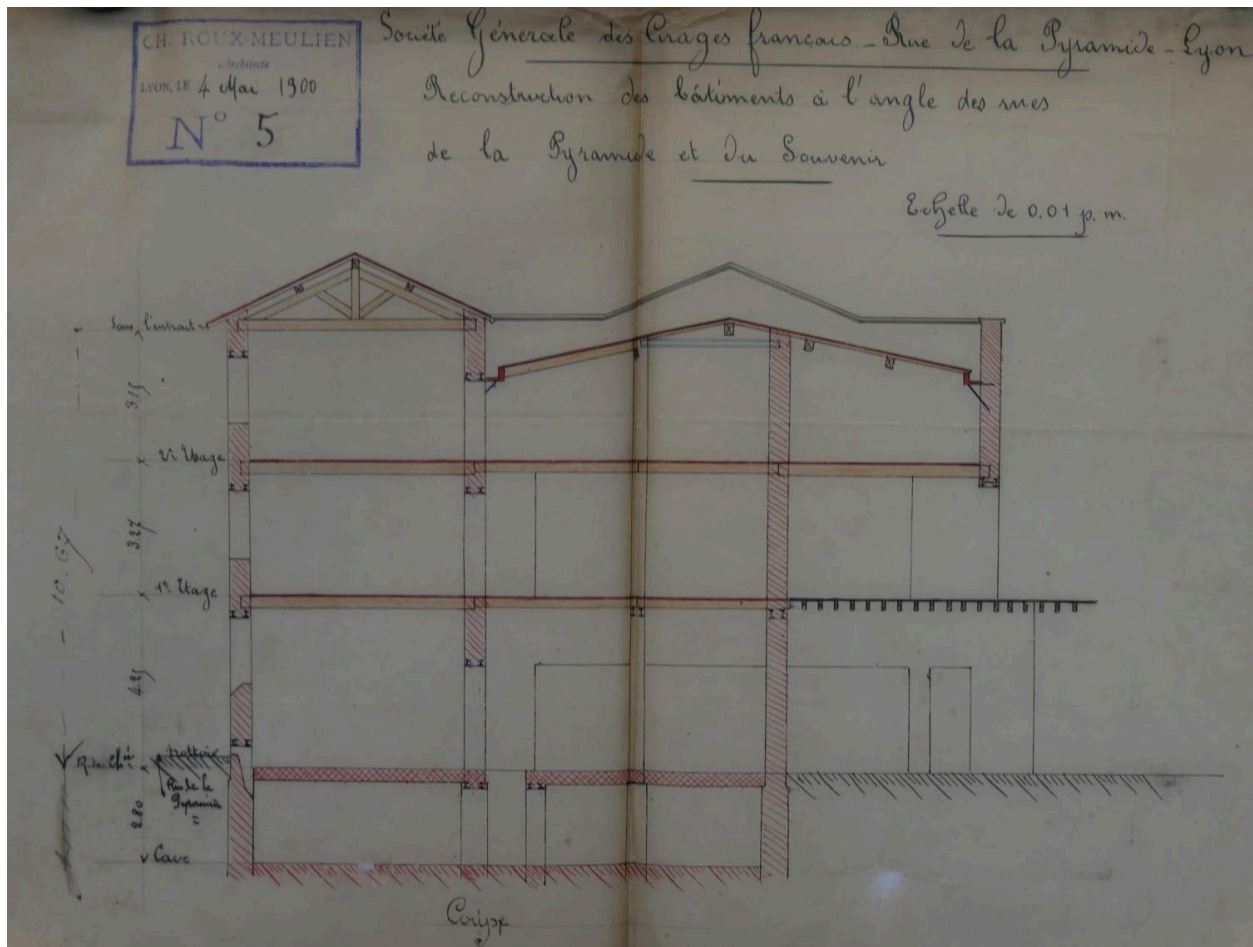 CH. ROUX-MEULIEN
Architecte
LYON, LE 4 Mai 1900
N° 5
Société Générale des Cirages français - Rue de la Pyramide - Lyon
Reconstruction des bâtiments à l'angle des rues
de la Pyramide et du Souvenir
Echelle de 0.01 p. m.
Sous l'entrait
3.15
2e. Etage
3.27
10.67
1er. Etage
4.25
R. de Ch.ée
trottoir
Rue de la
Pyramide
2.80
Cave
Coupe